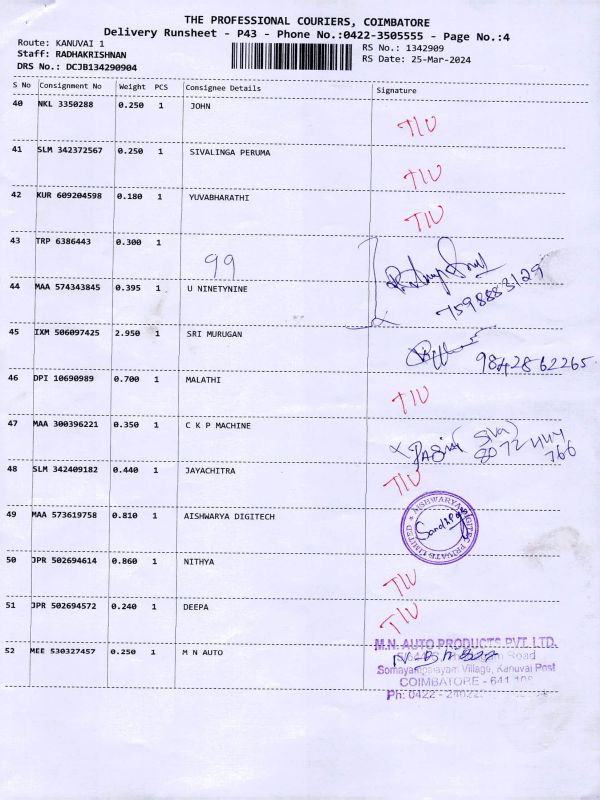 THE PROFESSIONAL COURIERS, COIMBATORE
Delivery Runsheet - P43 - Phone No.:0422-3505555 - Page No.:4
Route: KANUVAI 1
RS No.: 1342909
Staff: RADHAKRISHNAN
RS Date: 25-Mar-2024
DRS No.: DCJB134290904
S No Consignment No Weight PCS Consignee Details Signature
40 NKL 3350288 0.250 1 JOHN
TIU
41 SLM 342372567 0.250 1 SIVALINGA PERUMA
TIU
42 KUR 609204598 0.180 1 YUVABHARATHI
TIU
43 TRP 6386443 0.300 1
99
44 MAA 574343845 0.395 1 U NINETYNINE
7598883129
45 IXM 506097425 2.950 1 SRI MURUGAN
9842862265
46 DPI 10690989 0.700 1 MALATHI
TIU
47 MAA 300396221 0.350 1 C K P MACHINE
(Siva)
8072 444
766
48 SLM 342409182 0.440 1 JAYACHITRA
TIU
49 MAA 573619758 0.810 1 AISHWARYA DIGITECH
AISHWARYA DIGITEC PRIVATE LIMITED
50 JPR 502694614 0.860 1 NITHYA
TIU
51 JPR 502694572 0.240 1 DEEPA
TIU
52 MEE 530327457 0.250 1 M N AUTO
M.N. AUTO PRODUCTS PVT. LTD.
Road
Somayampalayam Village, Kanuvai Post
COIMBATORE - 641 108
Ph: 0422 -